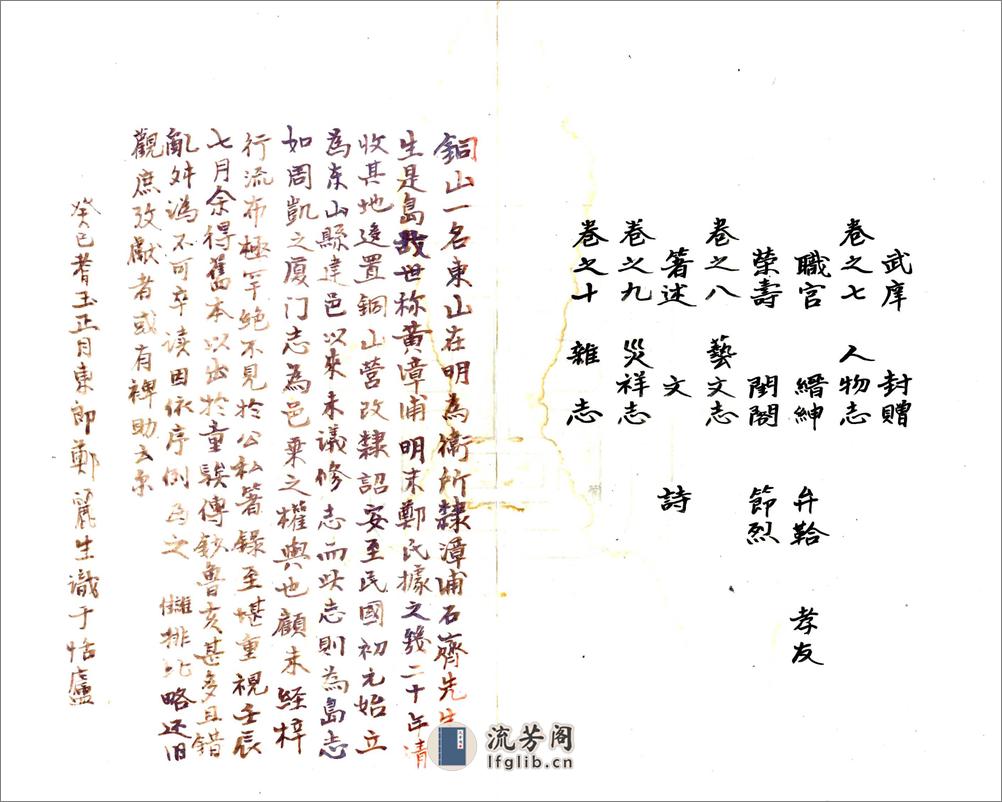 武庠　封贈
卷之七　人物志
職官　縉紳　弁鞈　孝友
榮壽　閨閤　節烈
卷之八　藝文志
箸述　文　詩
卷之九　災祥志
卷之十　雜志
銅山一名東山在明為衛所隸漳浦石齋先生
生是島故世称黃漳浦明末鄭氏據之幾二十年清
收其地後置銅山營改隸詔安至民國初元始立
為东山縣建邑以來未議修志而此志則為島志
如周凱之廈门志為邑乘之權輿也顧未経梓
行流布極罕絕不見於公私箸錄至堪重視壬辰
七月余得舊本以出於童騃傳鈔魯亥甚多且錯
亂舛溈不可卒读因依序例為之讎排比略还旧
觀庶攷獻者或有裨助云尔
癸巳耆玉正月東郎鄭麗生識于恬廬
流芳阁
lfglib.cn